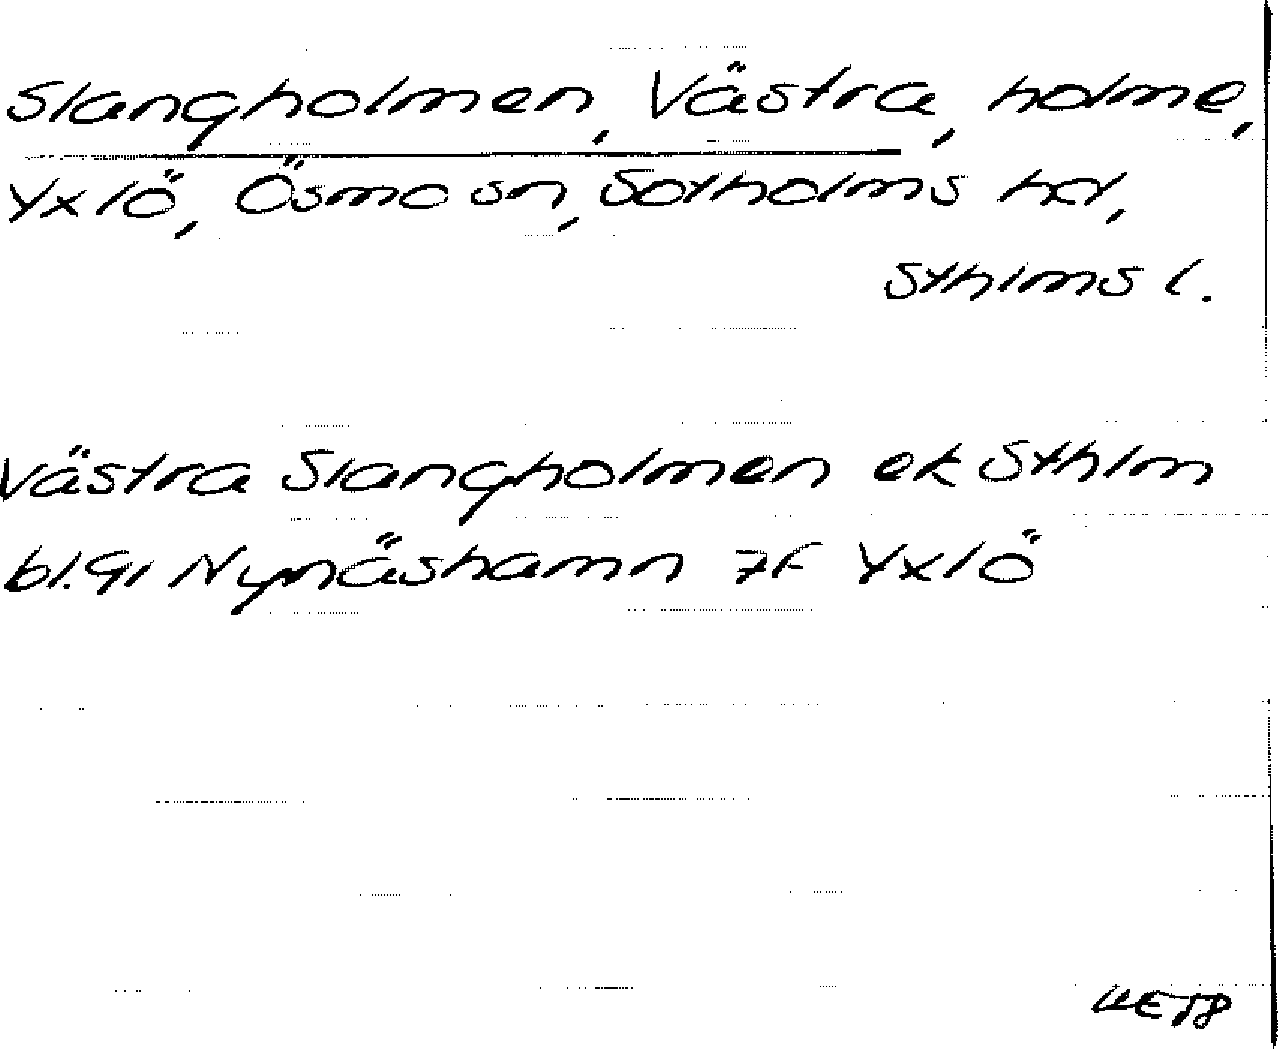 Slangholmen, Västra, holme,
Yxlö, Ösmo sn, Sotholms hd,
Sthlms l.
Västra Slangholmen ek Sthlm
bl. 91 N Nynäshamn 7f Yxlö